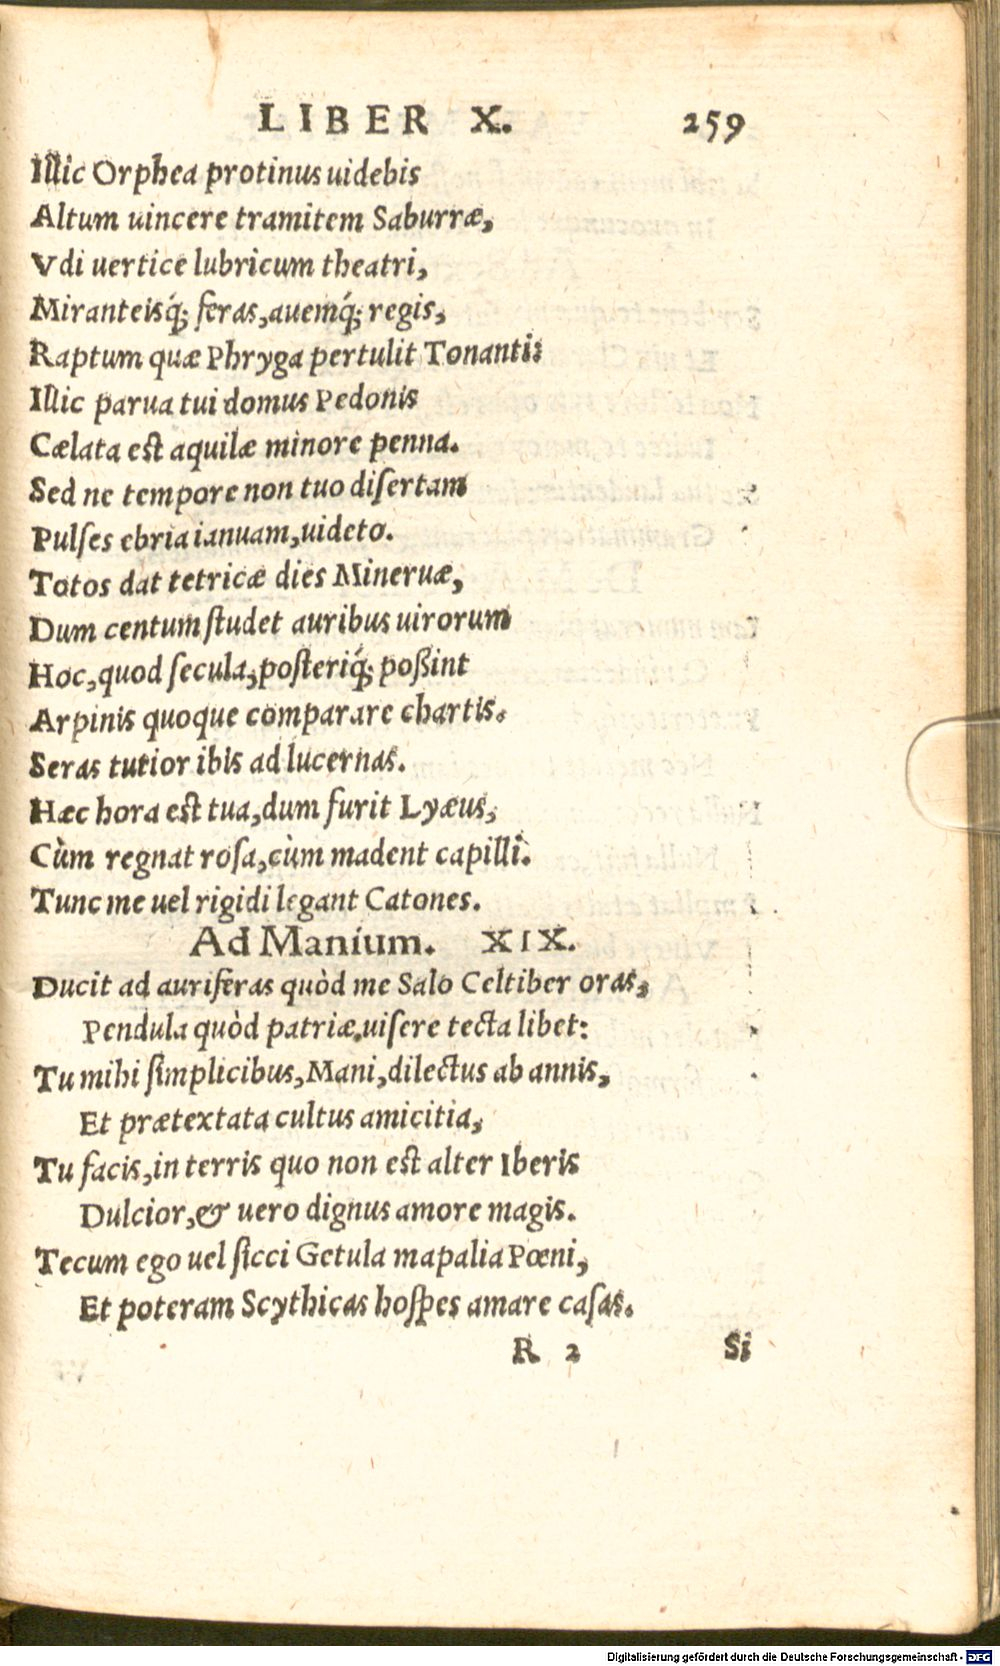 LIBER X. 259
Illic Orphea protinus uidebis
Altum uincere tramitem Saburræ,
Vdi uertice lubricum theatri,
Miranteisq́; feras, auemq́; regis,
Raptum quæ Phryga pertulit Tonanti:
Illic parua tui domus Pedonis
Cælata est aquilæ minore penna.
Sed ne tempore non tuo disertam
Pulses ebria ianuam, uideto.
Totos dat tetricæ dies Mineruæ,
Dum centum studet auribus uirorum
Hoc, quod secula, posteriq́; poßint
Arpinis quoque comparare chartis.
Seras tutior ibis ad lucernas.
Hæc hora est tua, dum furit Lyæus,
Cùm regnat rosa, cùm madent capilli.
Tunc me uel rigidi legant Catones.
Ad Manium. XIX.
Ducit ad auriferas quòd me Salo Celtiber oras,
Pendula quòd patriæ uisere tecta libet:
Tu mihi simplicibus, Mani, dilectus ab annis,
Et prætextata cultus amicitia,
Tu facis, in terris quo non est alter Iberis
Dulcior, & uero dignus amore magis.
Tecum ego uel sicci Getula mapalia Pœni,
Et poteram Scythicas hospes amare casas.
R 2 Si
Digitalisierung gefördert durch die Deutsche Forschungsgemeinschaft - DFG